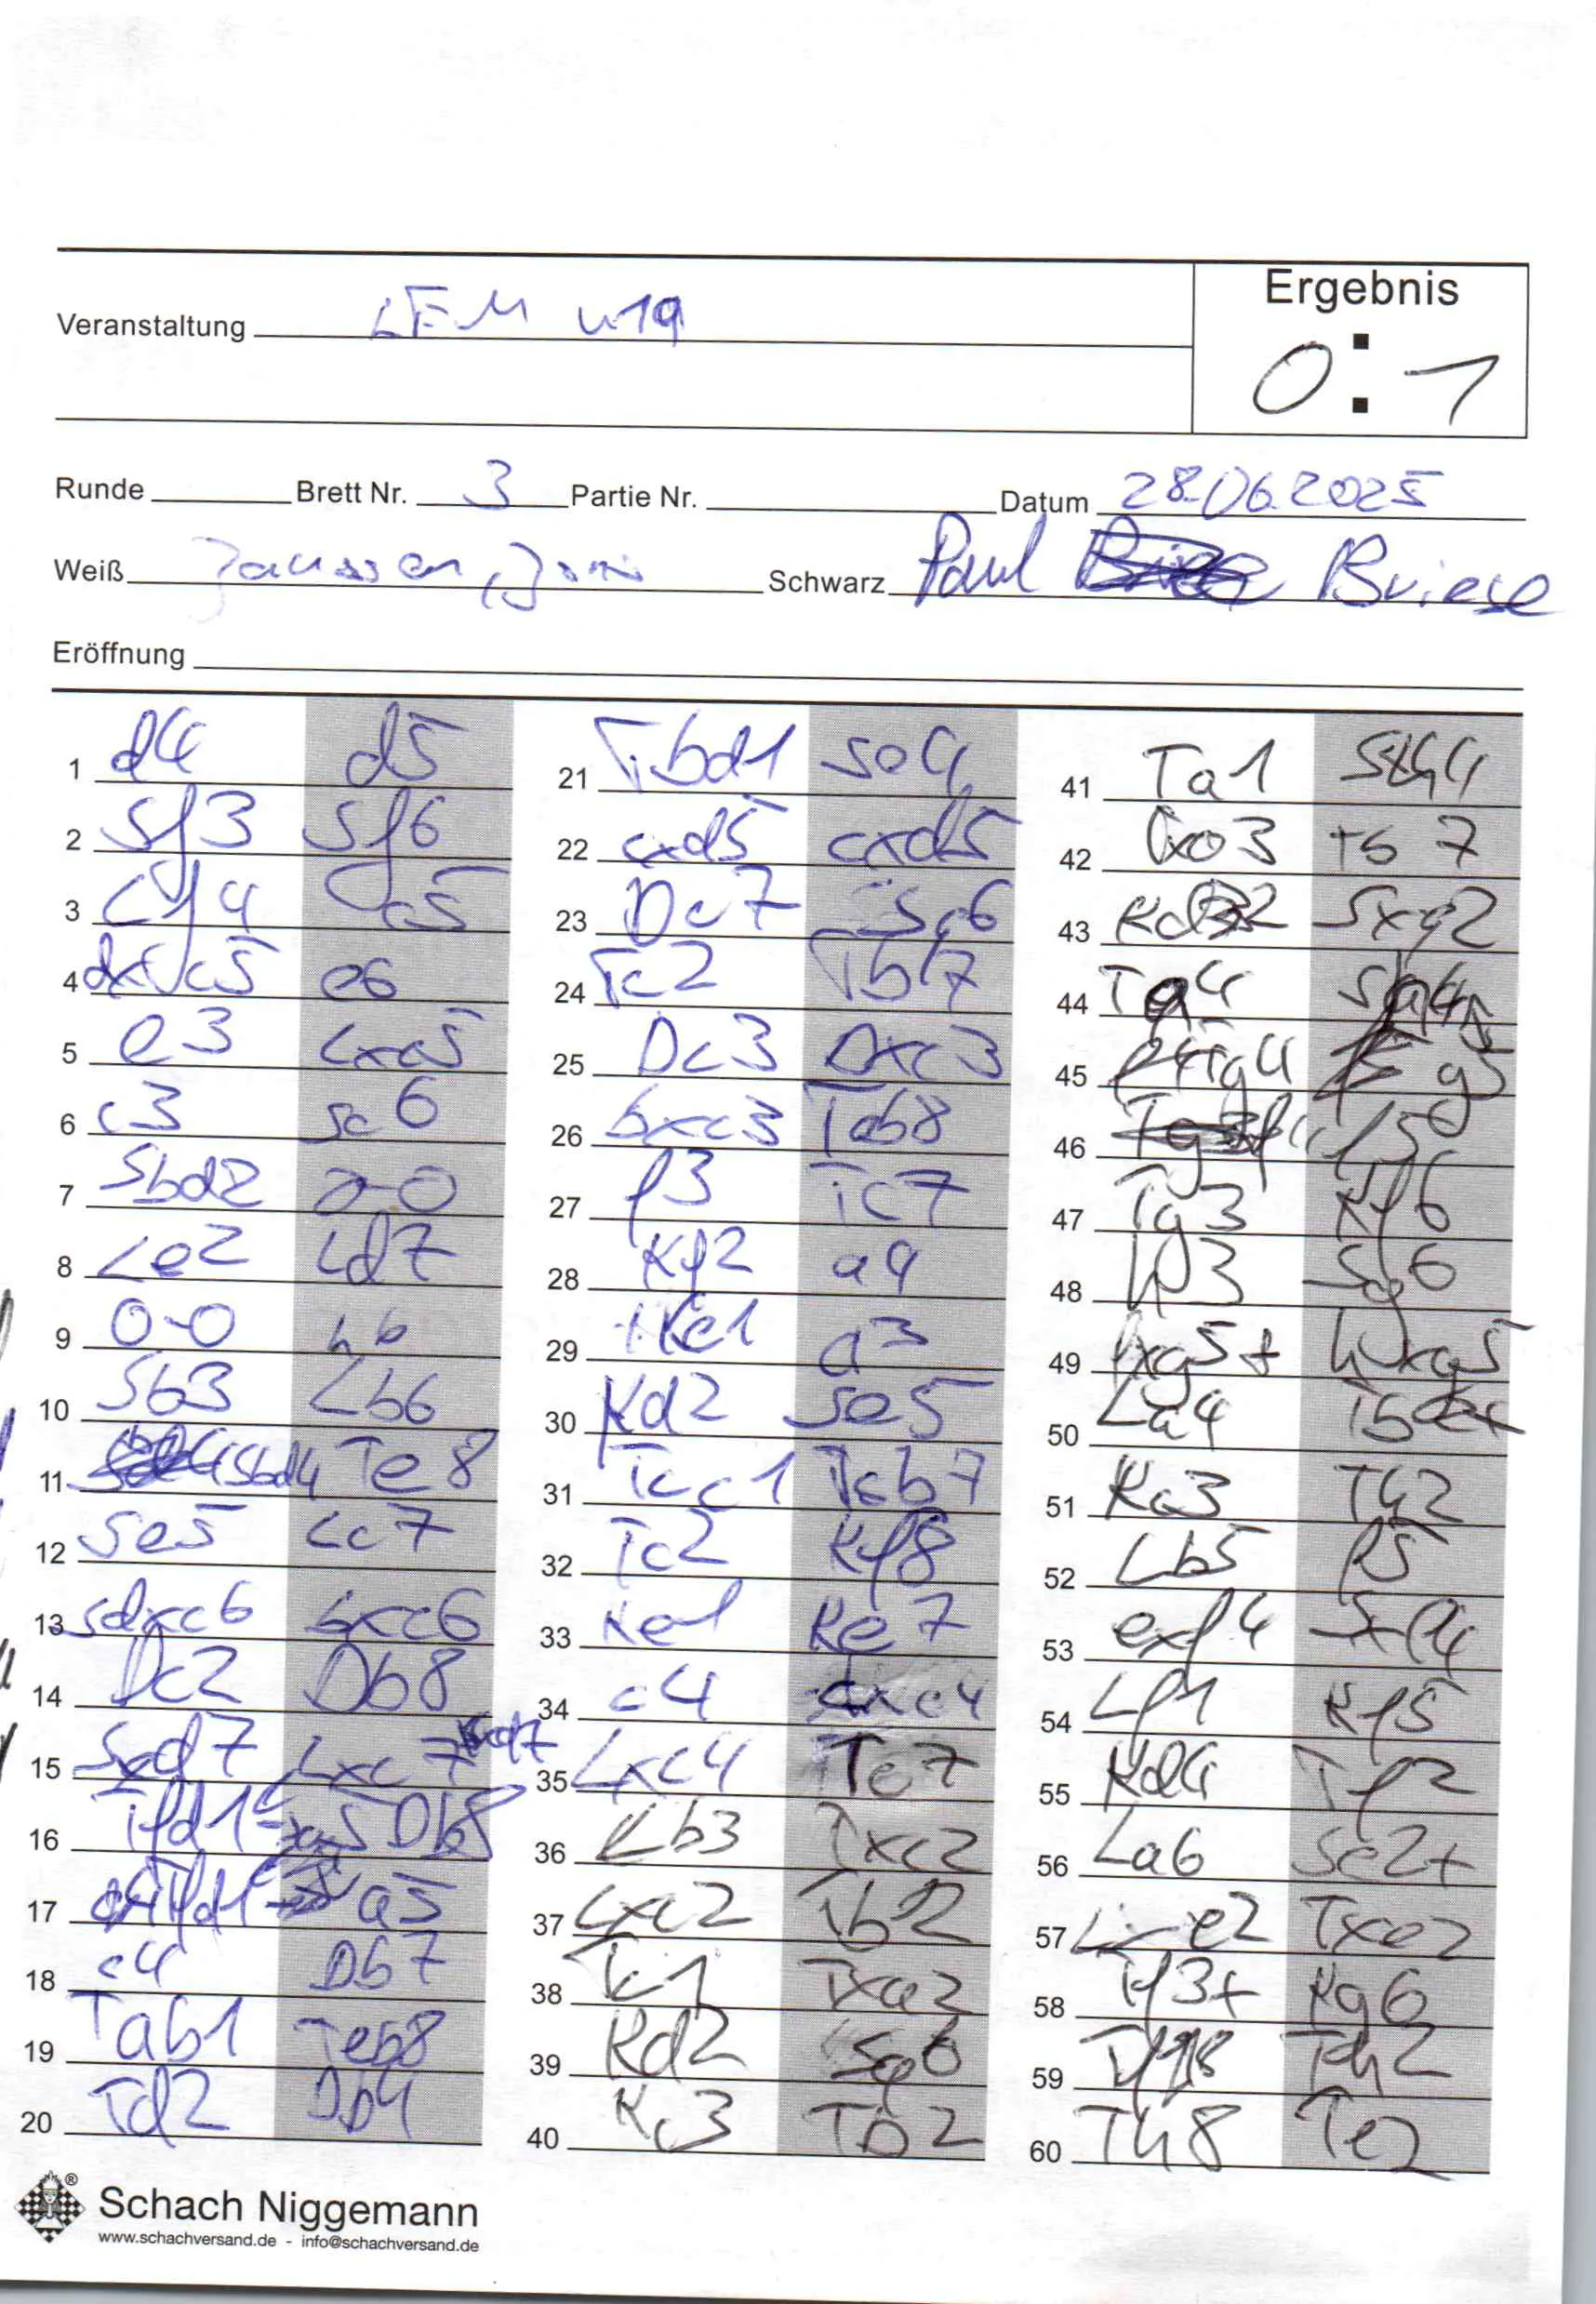 Ergebnis
0:1
Veranstaltung LEM u19
Runde Brett Nr. 3 Partie Nr. Datum 28.06.2025
Weiß Schwarz Paul Briese
Eröffnung
1 d4 d5
2 Sf3 Sf6
3 Lf4 c5
4 dxc5 e6
5 e3 Lxc5
6 c3 Sc6
7 Sbd2 0-0
8 Le2 Ld7
9 0-0 h6
10 Sb3 Lb6
11 Sbd4 Te8
12 Se5 Lc7
13 Sdxc6 bxc6
14 Dc2 Db8
15 Sxd7 Sxd7
16 Db8
17 Tfd1 a5
18 c4 Db7
19 Tab1 Teb8
20 Td2 Db4
21 Tbd1 Se4
22 cxd5 cxd5
23 Dc7 Sc6
24 Tc2 Tb7
25 Dc3 Dxc3
26 bxc3 Tab8
27 f3 Tc7
28 Kf2 a4
29 Ke1 a3
30 Kd2 Se5
31 Tcc1 Tcb7
32 Tc2 Kf8
33 Ke1 Ke7
34 c4 dxc4
35 Lxc4 Tc7
36 Lb3 Txc2
37 Lxc2 Tb2
38 Tc1 Txa2
39 Kd2 Sg6
40 Kc3 Tb2
41 Ta1 Sh4
42 Txa3 Tb7
43 Kd2 Sxg2
44
45 Tg4 g5
46
47 Tg3 Kf6
48 h3 Sg6
49 fxg5+ hxg5
50 La4
51 Kc3 Th2
52 Lb5 f5
53 exf4 Sxf4
54 Lf1 Kf5
55 Kd4 Tf2
56 La6 Se2+
57 Lxe2 Txe2
58 Tf3+ Kg6
59 Th2
60 Th8 Te2
Schach Niggemann
www.schachversand.de - info@schachversand.de